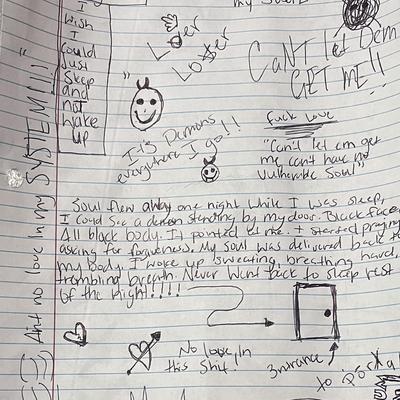 my
I
Wish
I
Could
Just
Sleep
and
not
Wake
up
Lover
Lo$er
CaN'T let Dem
GET ME!!
It's Demons
everywhere I go!!
fuck love
"Can't let em get
me, can't have no
Vulnerable Soul"
Ain't no love in my SYSTEM!!!"
Soul flew away one night while I was sleep,
I could see a demon standing by my door. Black face,
All black body. It pointed at me. I started praying
asking for forgiveness. My soul was delivered back to
my body. I woke up sweating, breathing hard,
trembling breath. Never Want back to sleep rest
of the night!!!!
No love, In
this Shit!
3ntrance